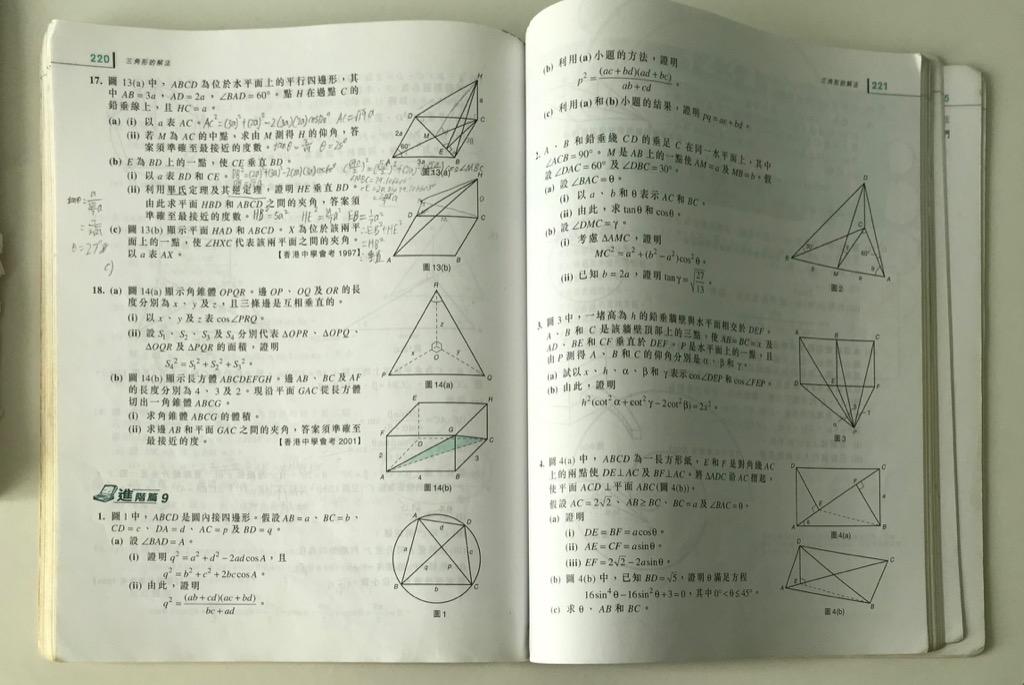 220 三角形的解法
17. 圖 13(a) 中，ABCD 為位於水平面上的平行四邊形，其
中 AB=3a，AD=2a，∠BAD=60°。點 H 在過點 C 的
鉛垂線上，且 HC=a。
(a) (i) 以 a 表 AC。
(ii) 若 M 為 AC 的中點，求由 M 測得 H 的仰角，答
案須準確至最接近的度數。
(b) E 為 BD 上的一點，使 CE 垂直 BD。
(i) 以 a 表 BD 和 CE。
(ii) 利用畢氏定理及其逆定理，證明 HE 垂直 BD。
由此求平面 HBD 和 ABCD 之間的夾角，答案須
準確至最接近的度數。
(c) 圖 13(b) 顯示平面 HAD 和 ABCD。X 為位於該兩平
面上的一點，使 ∠HXC 代表該兩平面之間的夾角。
以 a 表 AX。 【香港中學會考 1997】
圖 13(a)
圖 13(b)
18. (a) 圖 14(a) 顯示角錐體 OPQR。邊 OP、OQ 及 OR 的長
度分別為 x、y 及 z，且三條邊是互相垂直的。
(i) 以 x、y 及 z 表 cos∠PRQ。
(ii) 設 S₁、S₂、S₃ 及 S₄ 分別代表 △OPR、△OPQ、
△OQR 及 △PQR 的面積，證明
S₄²=S₁²+S₂²+S₃²。
(b) 圖 14(b) 顯示長方體 ABCDEFGH。邊 AB、BC 及 AF
的長度分別為 4、3 及 2。現沿平面 GAC 從長方體
切出一角錐體 ABCG。
(i) 求角錐體 ABCG 的體積。
(ii) 求邊 AB 和平面 GAC 之間的夾角，答案須準確至
最接近的度。 【香港中學會考 2001】
圖 14(a)
圖 14(b)
進階篇 9
1. 圖 1 中，ABCD 是圓內接四邊形。假設 AB=a、BC=b、
CD=c、DA=d、AC=p 及 BD=q。
(a) 設 ∠BAD=A。
(i) 證明 q²=a²+d²−2ad cos A，且
q²=b²+c²+2bc cos A。
(ii) 由此，證明
q²=(ab+cd)(ac+bd)/(bc+ad)。
圖 1
三角形的解法 221
(b) 利用 (a) 小題的方法，證明
p²=(ac+bd)(ad+bc)/(ab+cd)。
(c) 利用 (a) 和 (b) 小題的結果，證明 pq=ac+bd。
2. A、B 和鉛垂綫 CD 的垂足 C 在同一水平面上，其中
∠ACB=90°。M 是 AB 上的一點使 AM=a 及 MB=b。假
設 ∠DAC=60° 及 ∠DBC=30°。
(a) 設 ∠BAC=θ。
(i) 以 a、b 和 θ 表示 AC 和 BC。
(ii) 由此，求 tanθ 和 cosθ。
(b) 設 ∠DMC=γ。
(i) 考慮 △AMC，證明
MC²=a²+(b²−a²)cos²θ。
(ii) 已知 b=2a，證明 tanγ=√(27/13)。
圖 2
3. 圖 3 中，一堵高為 h 的鉛垂牆壁與水平面相交於 DEF。
A、B 和 C 是該牆壁頂部上的三點，使 AB=BC=x 及
AD、BE 和 CF 垂直於 DEF。P 是水平面上的一點，且
由 P 測得 A、B 和 C 的仰角分別是 α、β 和 γ。
(a) 試以 x、h、α、β 和 γ 表示 cos∠DEP 和 cos∠FEP。
(b) 由此，證明
h²(cot²α+cot²γ−2cot²β)=2x²。
圖 3
4. 圖 4(a) 中，ABCD 為一長方形紙，E 和 F 是對角綫 AC
上的兩點使 DE⊥AC 及 BF⊥AC。將 △ADC 沿 AC 摺起，
使平面 ACD⊥平面 ABC (圖 4(b))。
假設 AC=2√2、AB≥BC、BC=a 及 ∠BAC=θ。
(a) 證明
(i) DE=BF=a cosθ。
(ii) AE=CF=a sinθ。
(iii) EF=2√2−2a sinθ。
(b) 圖 4(b) 中，已知 BD=√5，證明 θ 滿足方程
16sin⁴θ−16sin²θ+3=0，其中 0°<θ≤45°。
(c) 求 θ、AB 和 BC。
圖 4(a)
圖 4(b)